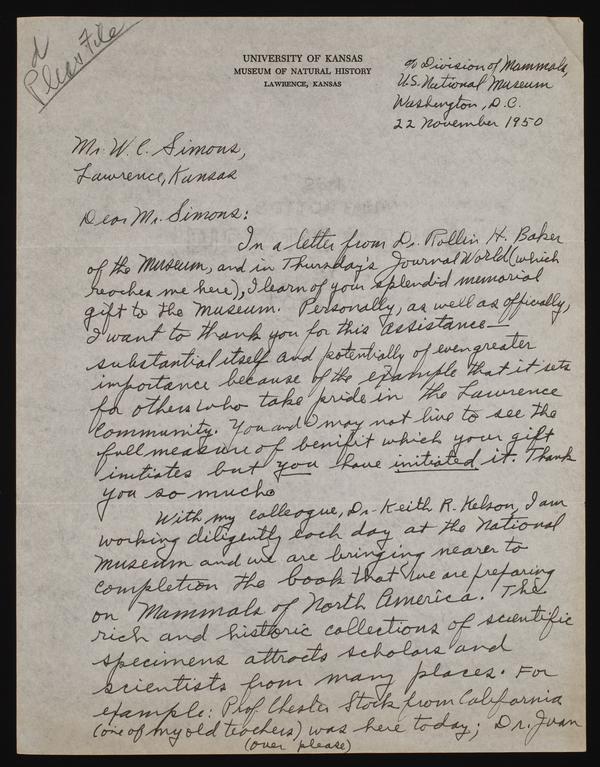 d
Pleas File
UNIVERSITY OF KANSAS
MUSEUM OF NATURAL HISTORY
LAWRENCE, KANSAS
% Division of Mammals,
U.S. National Museum
Washington, D.C.
22 November 1950
Mr. W. C. Simons,
Lawrence, Kansas
Dear Mr. Simons:
In a letter from Dr. Rollin H. Baker
of the Museum, and in Thursday's Journal World (which
reaches me here), I learn of your splendid memorial
gift to the Museum. Personally, as well as officially,
I want to thank you for this assistance—
substantial itself and potentially of even greater
importance because of the example that it sets
for others who take pride in the Lawrence
Community. You and I may not live to see the
full measure of benifit which your gift
initiates but you have initiated it. Thank
you so much.
With my colleague, Dr. Keith R. Kelson, I am
working diligently each day at the National
Museum and we are bringing nearer to
completion the book that we are preparing
on Mammals of North America. The
rich and historic collections of scientific
specimens attracts scholars and
scientists from many places. For
example: Prof. Chester Stock from California
(one of my old teachers) was here today; Dr. Juan
(over please)